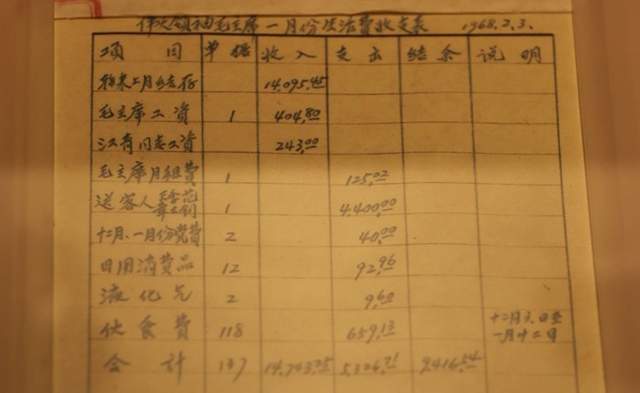 伟大领袖毛主席一月份生活费收支表 1968.2.3.
项目 单据 收入 支出 结余 说明
上月结存 14,095.45
毛主席工资 1 404.80
江青同志工资 243.00
毛主席月租费 1 125.02
送客人 王季范 章士钊 1 4,400.00
十二月、一月份党费 2 40.00
日用消费品 12 92.96
液化气 2 9.60
伙食费 118 659.13 十二月六日至
一月十二日
合计 137 14,743.25 5,326.71 9,416.54